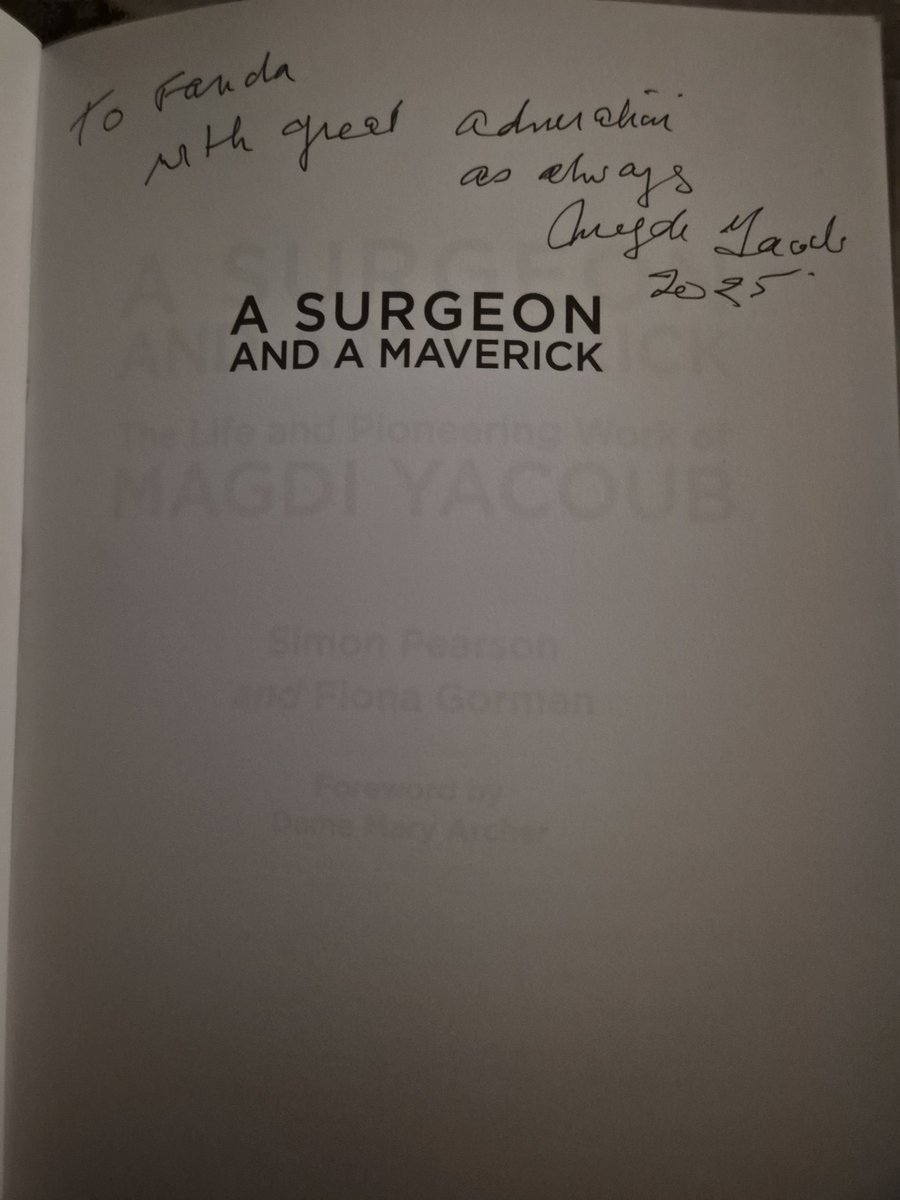 To Farida
with great admiration
as always
Magdi Yacoub
2025
A SURGEON
AND A MAVERICK
A SURGEON
AND A MAVERICK
The Life and Pioneering Work of
MAGDI YACOUB
Simon Pearson
and Fiona Gorman
Foreword by
Dame Mary Archer